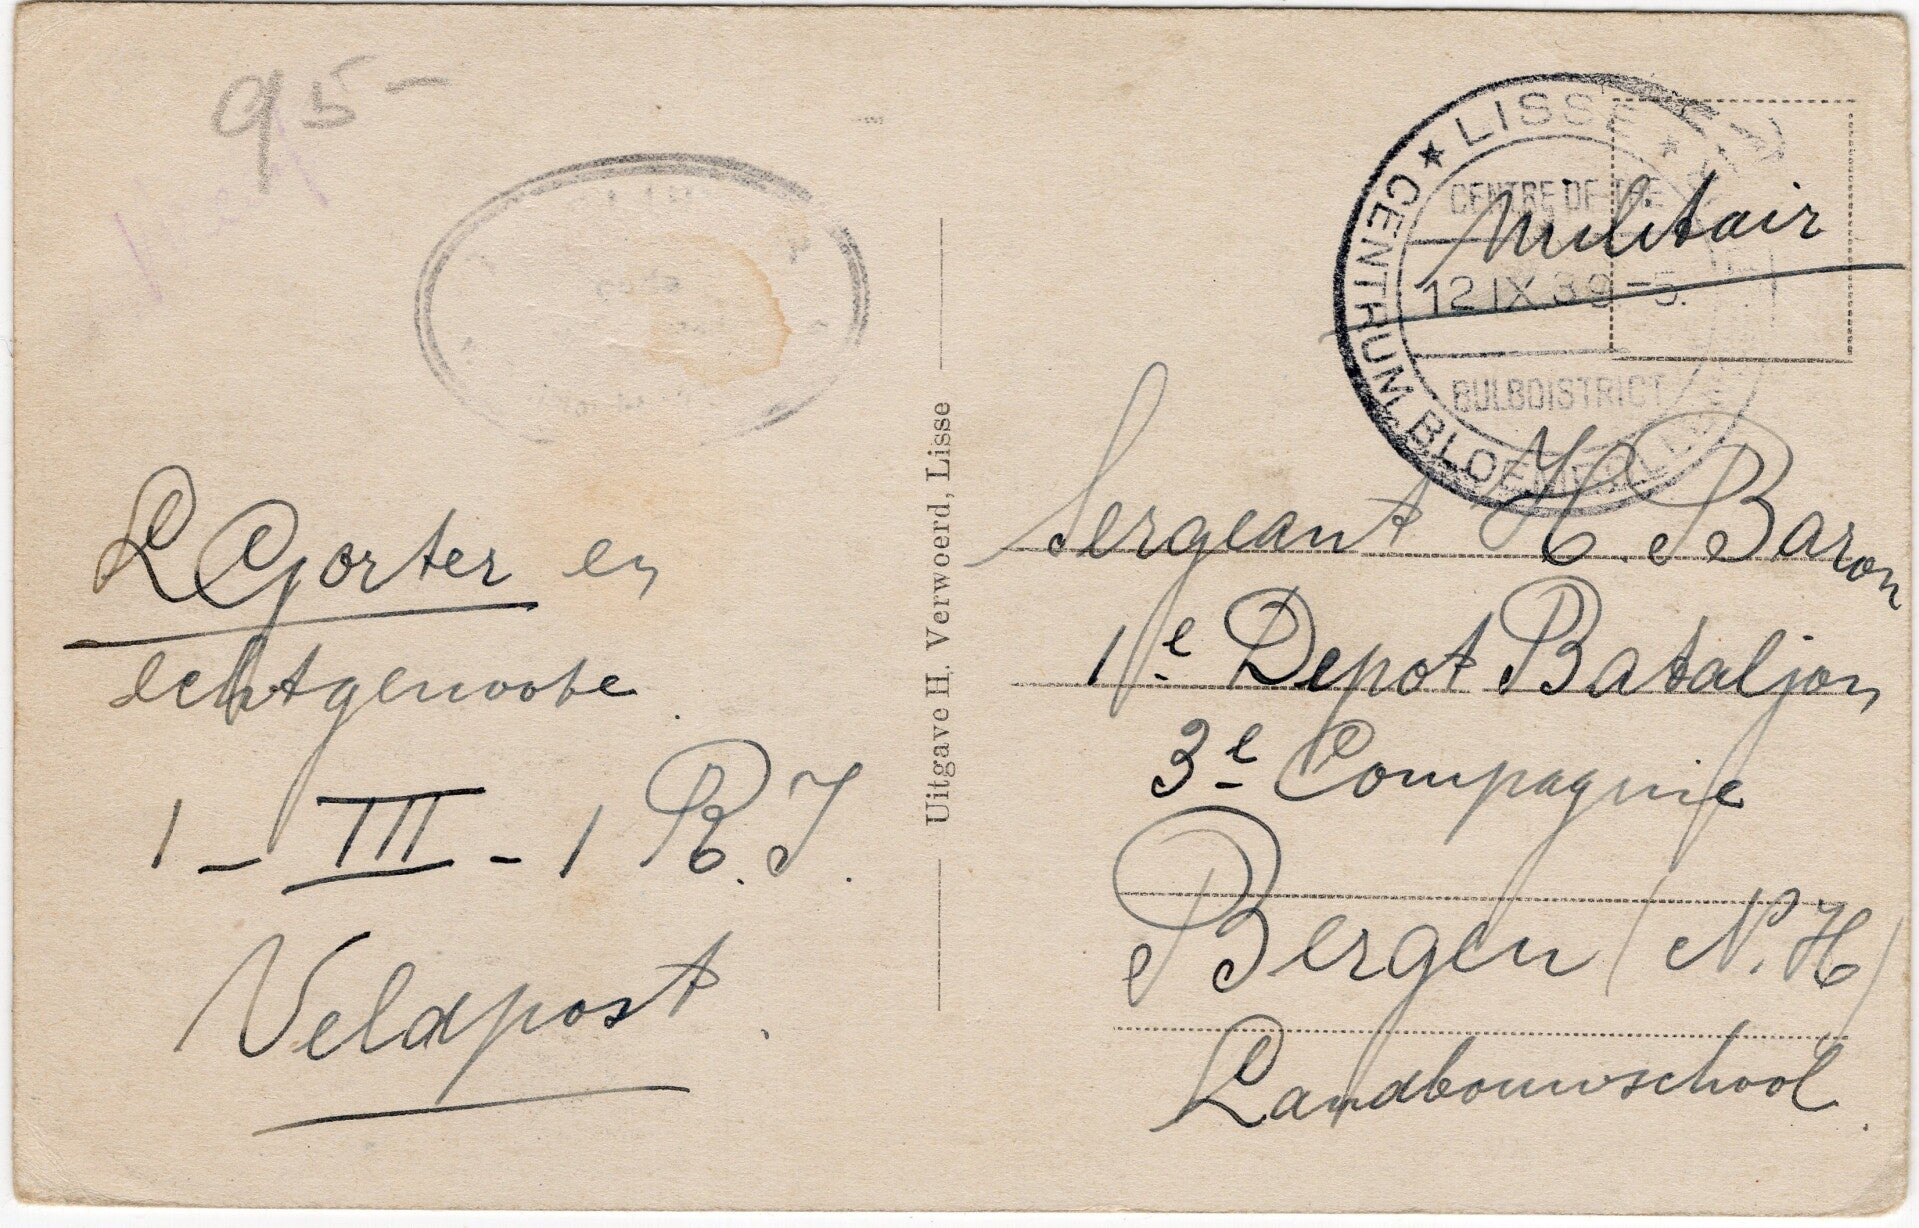 95-
L Gorter en
echtgenoote
1 - III - 1 R.I.
Veldpost.
Uitgave H. Verwoerd, Lisse
★ LISSE ★
CENTRE OF THE
12 IX 39 - 5.
BULBDISTRICT
CENTRUM BLOEMBOLLEN
Militair
Sergeant H. Baron
1e Depot Bataljon
3e Compagnie
Bergen (N.H)
Landbouwschool.